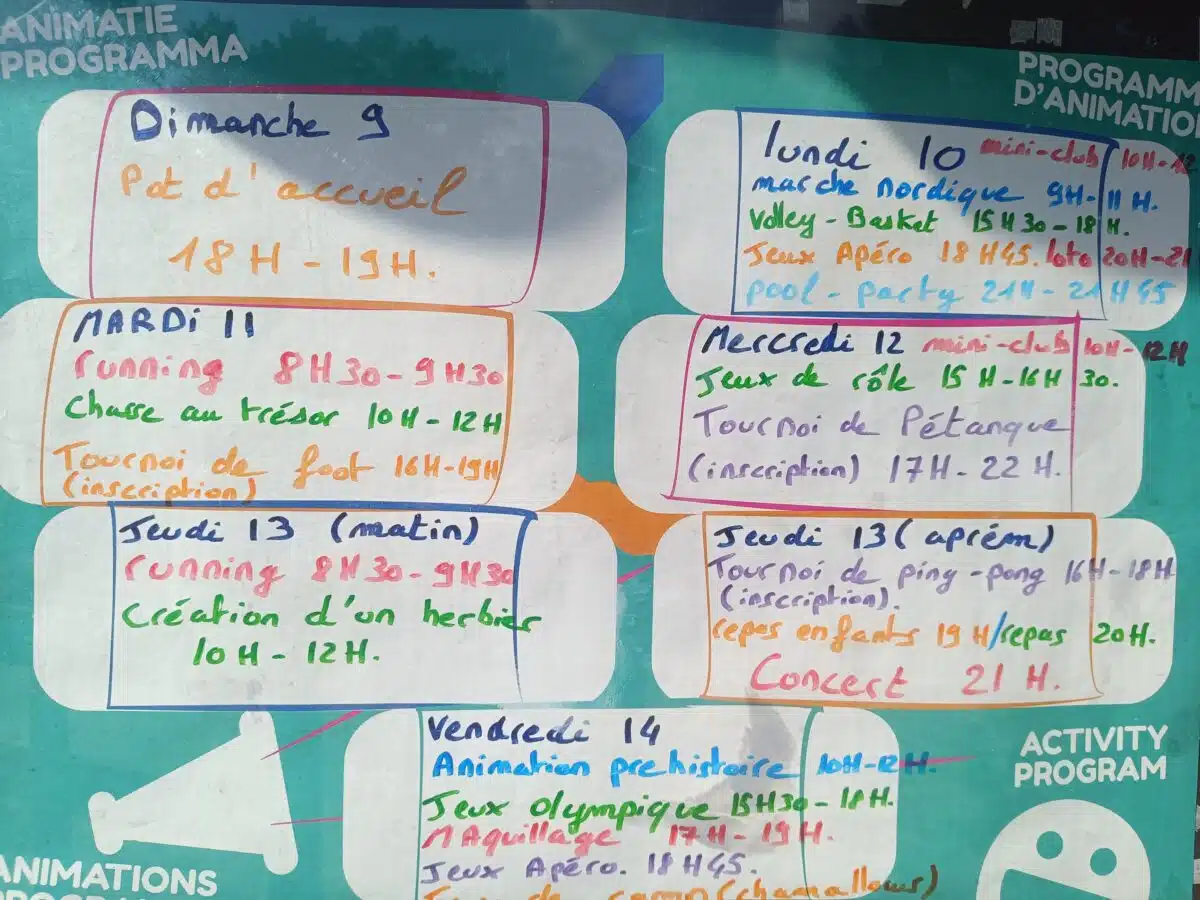 ANIMATIE
PROGRAMMA
PROGRAMM
D'ANIMATIO
Dimanche 9
Pot d'accueil
18H - 19H.
lundi 10 mini-club 10H-12
marche nordique 9H-11H.
Volley-Basket 15H30-18H.
Jeux Apéro 18H45. loto 20H-21
pool-party 21H-21H45
MARDi 11
running 8H30-9H30
Chasse au trésor 10H-12H
Tournoi de foot 16H-19H
(inscription)
Mercredi 12 mini-club 10H-12H
Jeux de rôle 15H-16H30.
Tournoi de Pétanque
(inscription) 17H-22H.
Jeudi 13 (matin)
running 8H30-9H30
Création d'un herbier
10H-12H.
Jeudi 13 (aprém)
Tournoi de ping-pong 16H-18H
(inscription).
repas enfants 19H/repas 20H.
Concert 21H.
Vendredi 14
Animation prehistoire 10H-12H.
Jeux Olympique 15H30-18H.
MAquillage 17H-19H.
Jeux Apéro. 18H45.
de camp (chamallows)
ACTIVITY
PROGRAM
ANIMATIONS